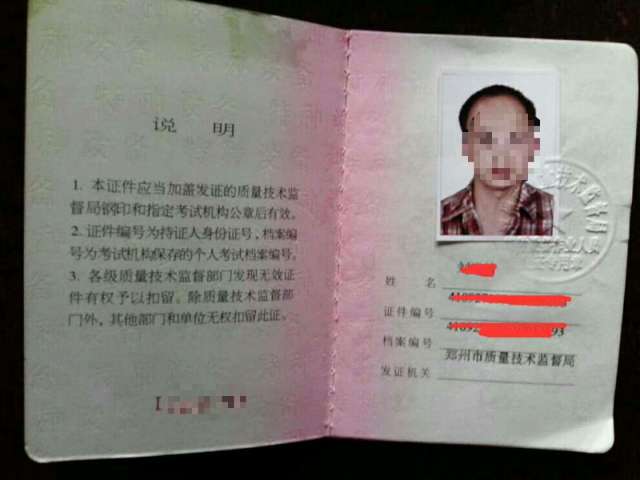 说 明
1. 本证件应当加盖发证的质量技术监
督局钢印和指定考试机构公章后有效。
2. 证件编号为持证人身份证号，档案编
号为考试机构保存的个人考试档案编号。
3. 各级质量技术监督部门发现无效证
件有权予以扣留。除质量技术监督部
门外，其他部门和单位无权扣留此证。
姓 名
证件编号
档案编号
发证机关 郑州市质量技术监督局